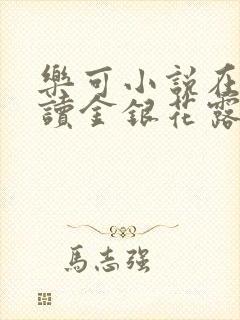 樂可小說在
讀金銀花露
馬志强